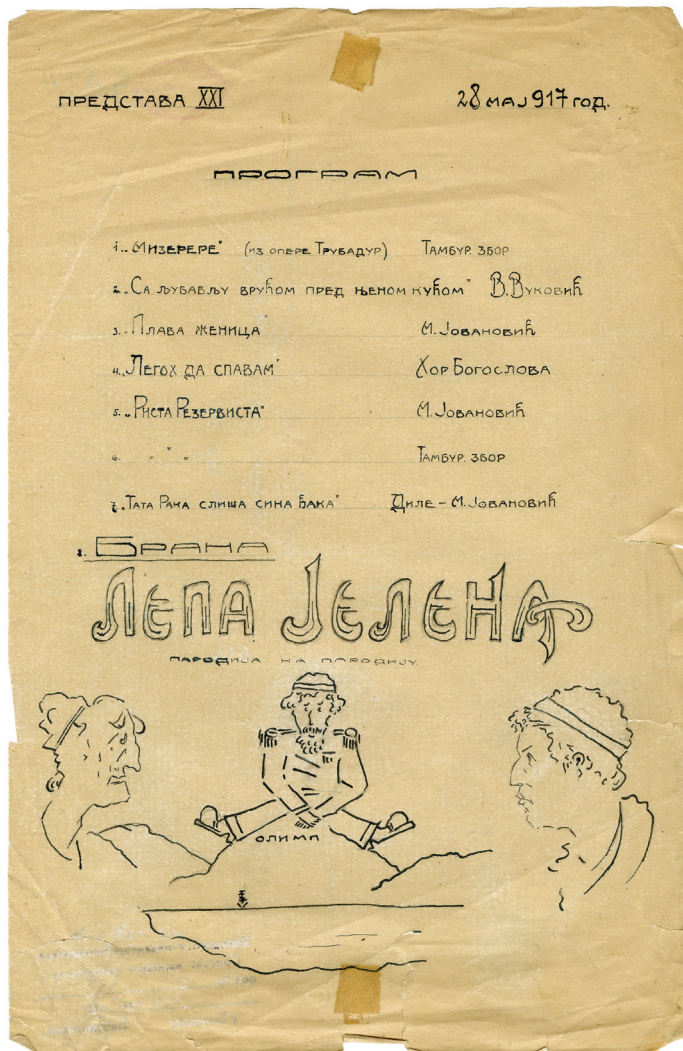 ПРЕДСТАВА XXI 28 МАЈ 917 ГОД.
ПРОГРАМ
1. „МИЗЕРЕРЕ" (ИЗ ОПЕРЕ ТРУБАДУР) ТАМБУР. ЗБОР
2. „СА ЉУБАВЉУ ВРУЋОМ ПРЕД ЊЕНОМ КУЋОМ" В. ВУКОВИЋ
3. „ПЛАВА ЖЕНИЦА" М. ЈОВАНОВИЋ
4. „ЛЕГОХ ДА СПАВАМ" ХОР БОГОСЛОВА
5. „РИСТА РЕЗЕРВИСТА" М. ЈОВАНОВИЋ
6. " " " ТАМБУР. ЗБОР
7. „ТАТА РАКА СЛИША СИНА ЂАКА" ДИЛЕ – М. ЈОВАНОВИЋ
8. БРАНА
ЛЕПА ЈЕЛЕНА
ПАРОДИЈА НА ПАРОДИЈУ.
ОЛИМП